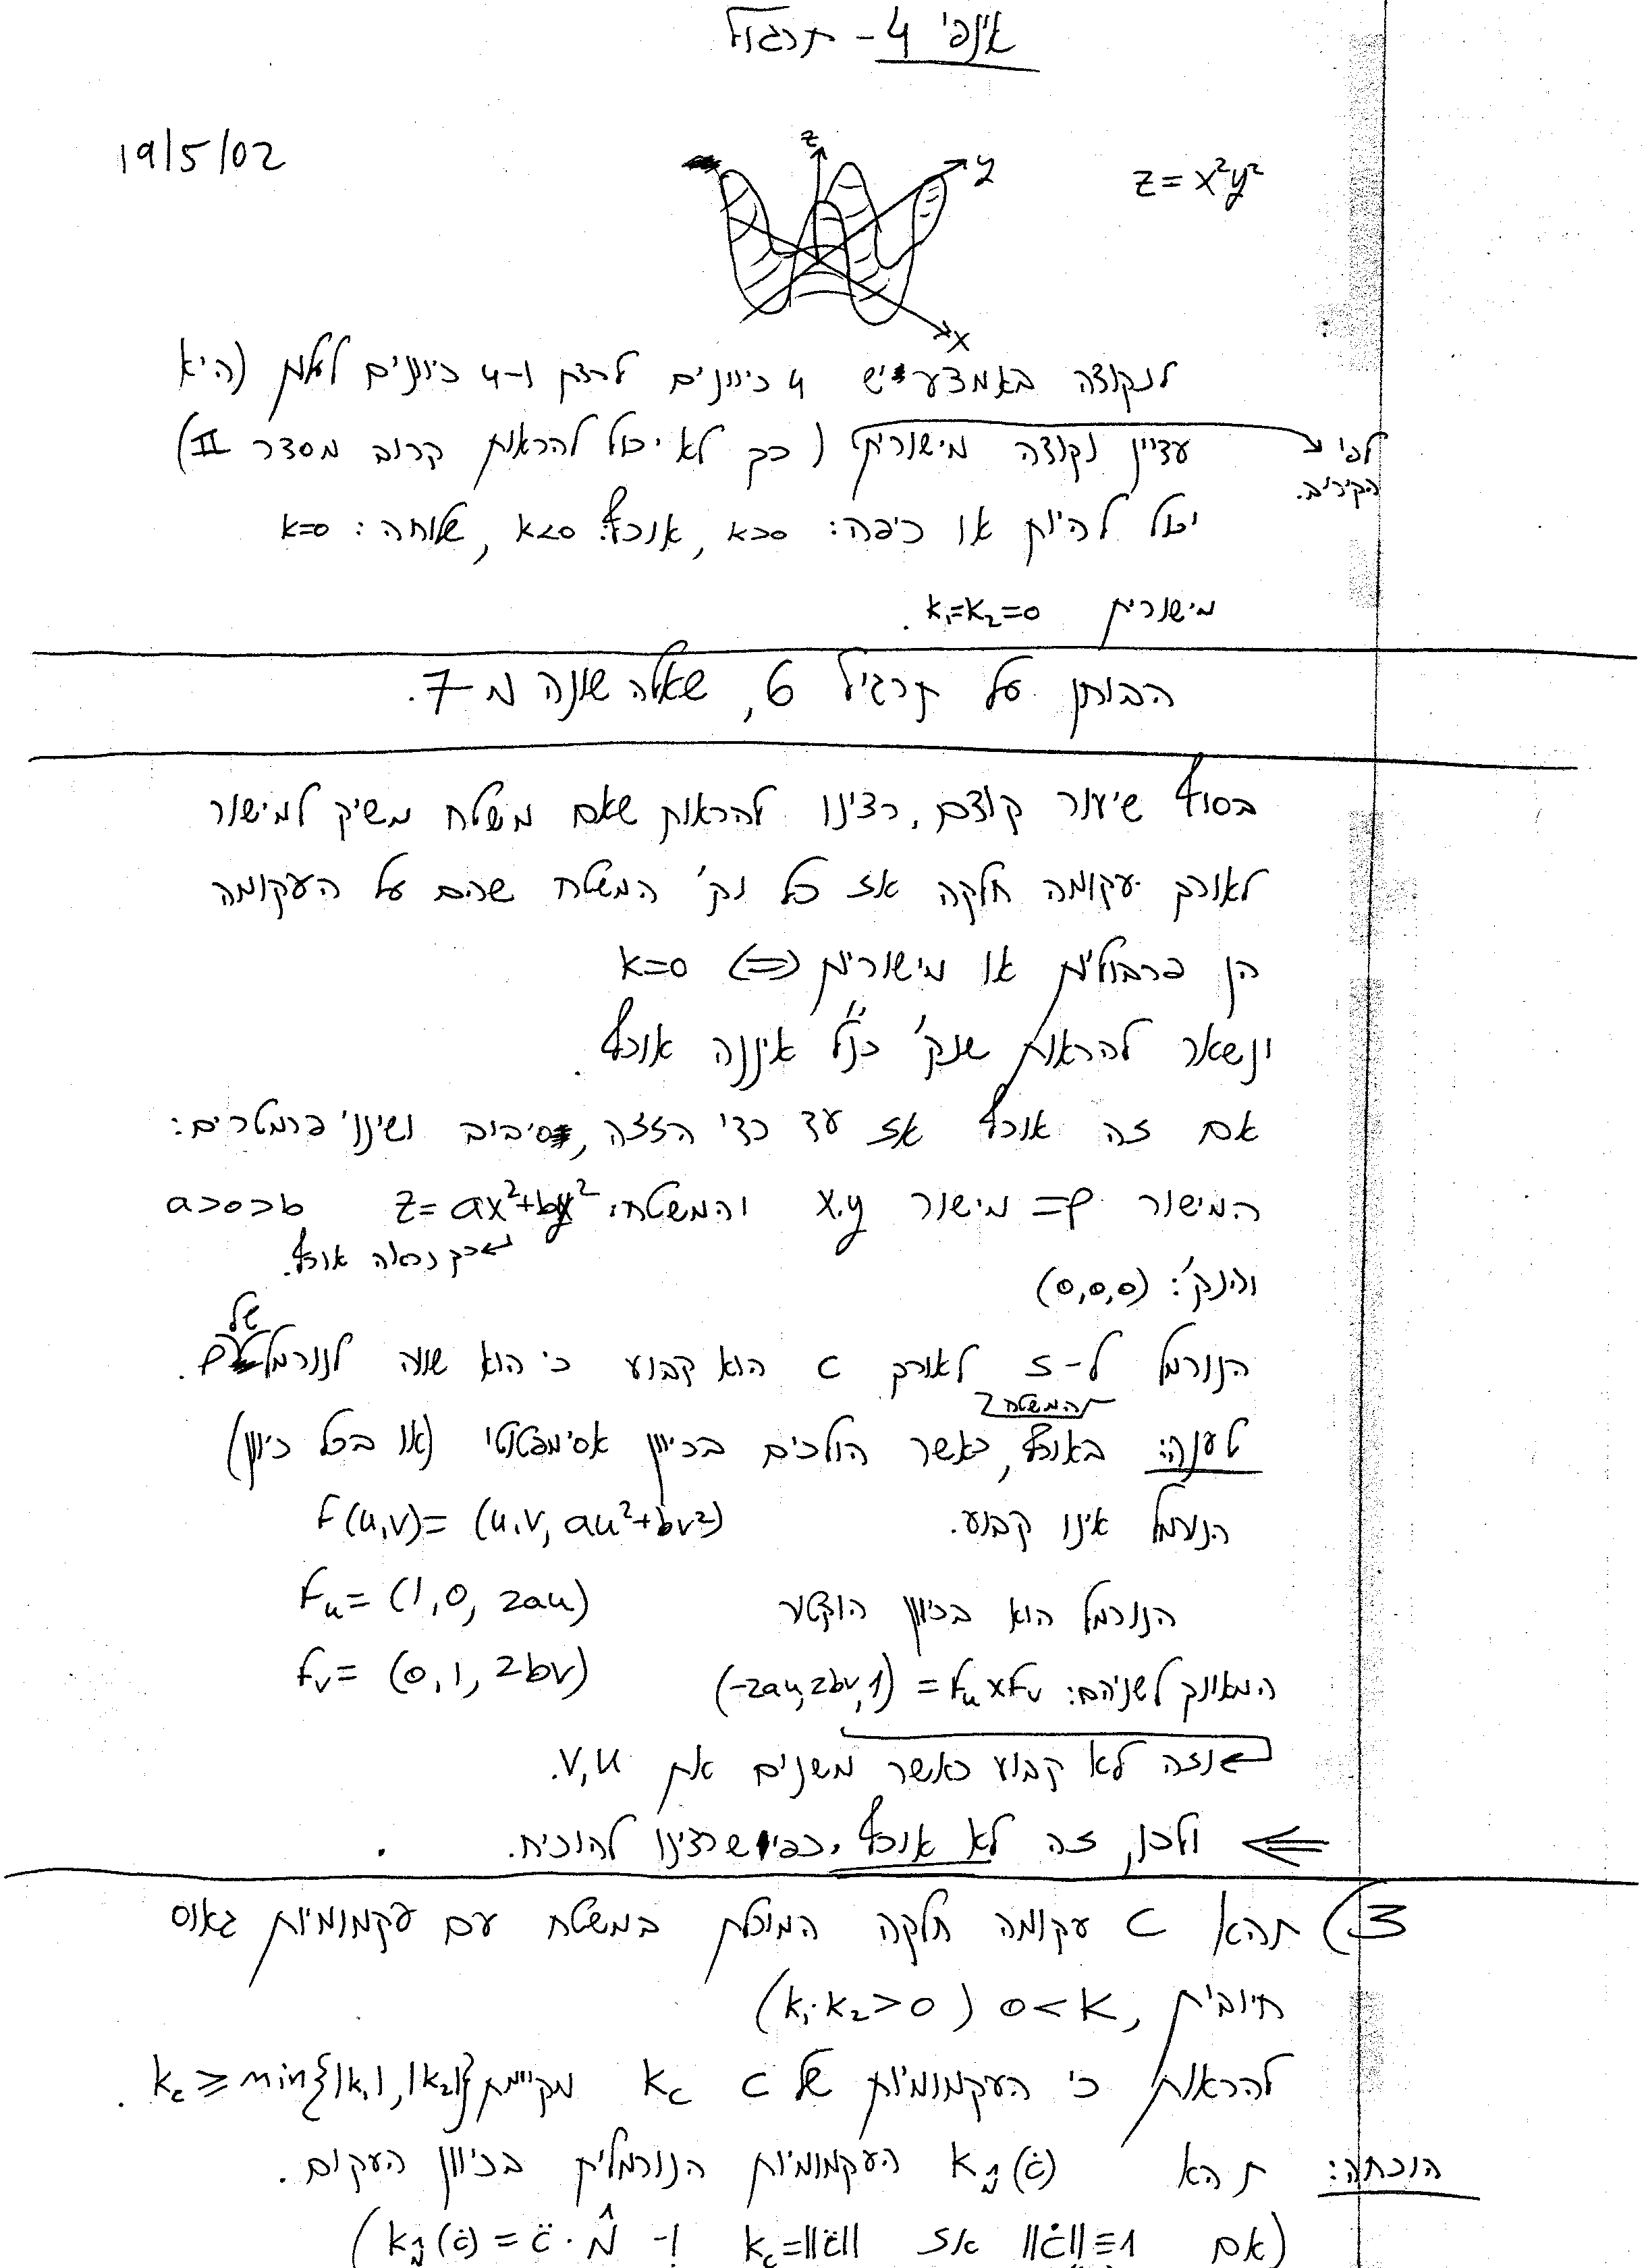 אינפי 4 - תרגול
19/5/02
z = x²y²
z
y
x
לנקודה באמצע יש 4 כיוונים לרדת ו-4 כיוונים לעלות (היא
עדיין נקודה מישורית) (כך לא יכול להראות קרוב מסדר II)
לפי הקירוב.
יכול להיות או כיפה: k>0, אוכף: k<0, שלוחה: k=0
מישורית k₁=k₂=0.
הבוחן על תרגיל 6, שאלה שונה מ 7.
בסוף שיעור קודם, רצינו להראות שאם משטח משיק למישור
לאורך עקומה חלקה אז כל נק' המשטח שהם על העקומה
הן פרבוליות או מישוריות (⇐) k=0
ונשאר להראות שנק' כנ"ל איננה אוכף.
אם זה אוכף אז עד כדי הזזה, סיבוב ושינוי פרמטרים:
המישור P = מישור x,y והמשטח: z = ax²+by² a>0>b
כך נראה אוכף.
והנק': (0,0,0)
הנורמל ל-S לאורך C הוא קבוע כי הוא שווה לנורמל של P.
המשטח
טענה: באוכף, כאשר הולכים בכיוון אסימפטוטי (או בכל כיוון)
הנורמל אינו קבוע. F(u,v) = (u,v, au²+bv²)
הנורמל הוא בכיוון הוקטור F_u = (1,0, 2au)
המאונך לשניהם: (-2au, 2bv, 1) = F_u × F_v F_v = (0,1, 2bv)
וזה לא קבוע כאשר משנים את v,u.
⇐ ולכן, זה לא אוכף, כפי שרצינו להוכיח.
3) תהא C עקומה חלקה המוכלת במשטח עם עקמומיות גאוס
חיובית, 0<K (k₁·k₂>0)
להראות כי העקמומיות של C k_c מקיימת k_c ≥ min{|k₁|,|k₂|}.
הוכחה: תהא k_n̂(ċ) העקמומיות הנורמלית בכיוון העקום.
(אם ||ċ||≡1 אז k_c=||c̈|| ו- k_n̂(ċ) = c̈ · N̂)